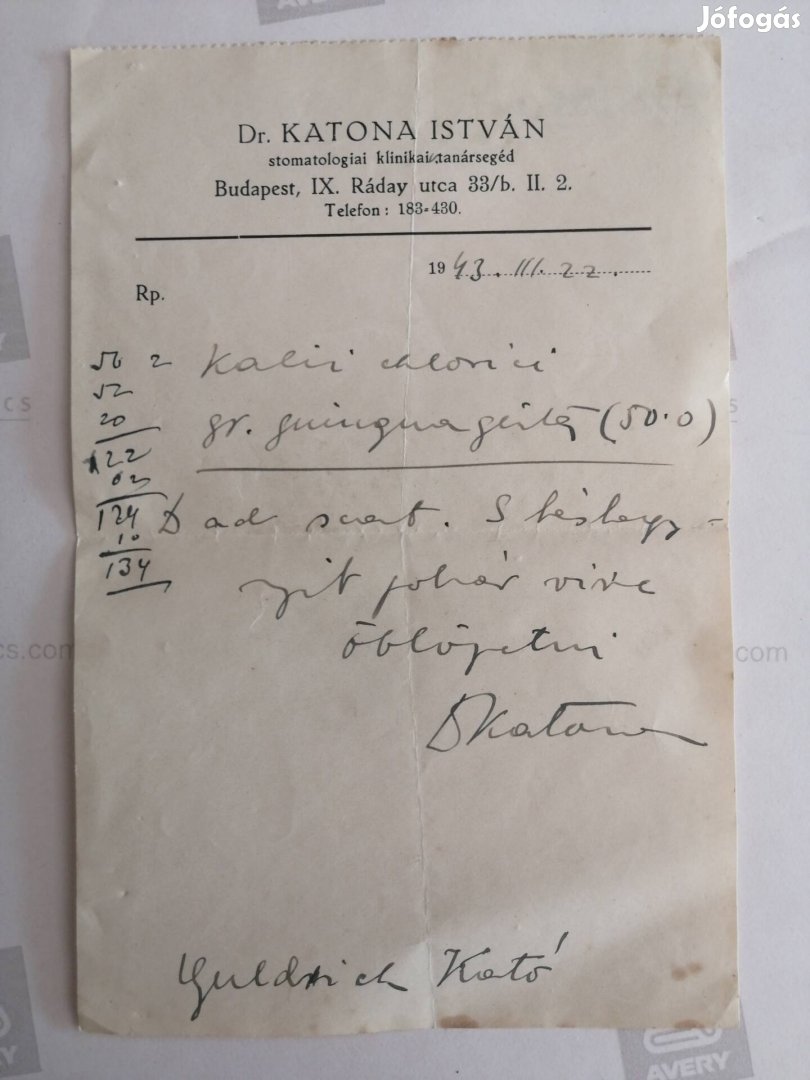 Jófogás
Dr. KATONA ISTVÁN
stomatologiai klinikai tanársegéd
Budapest, IX. Ráday utca 33/b. II. 2.
Telefon: 183-430.
1943. III. 22.
Rp.
50
52
20
122
02
124
10
134
Kalii chlorici
gr. quinquaginta (50.0)
D ad scat. S késhegy-
nyit pohár vízre
öblögetni
DKatona
Guldrich Kató
AVERY
cs.com
com
AVERY
AVERY